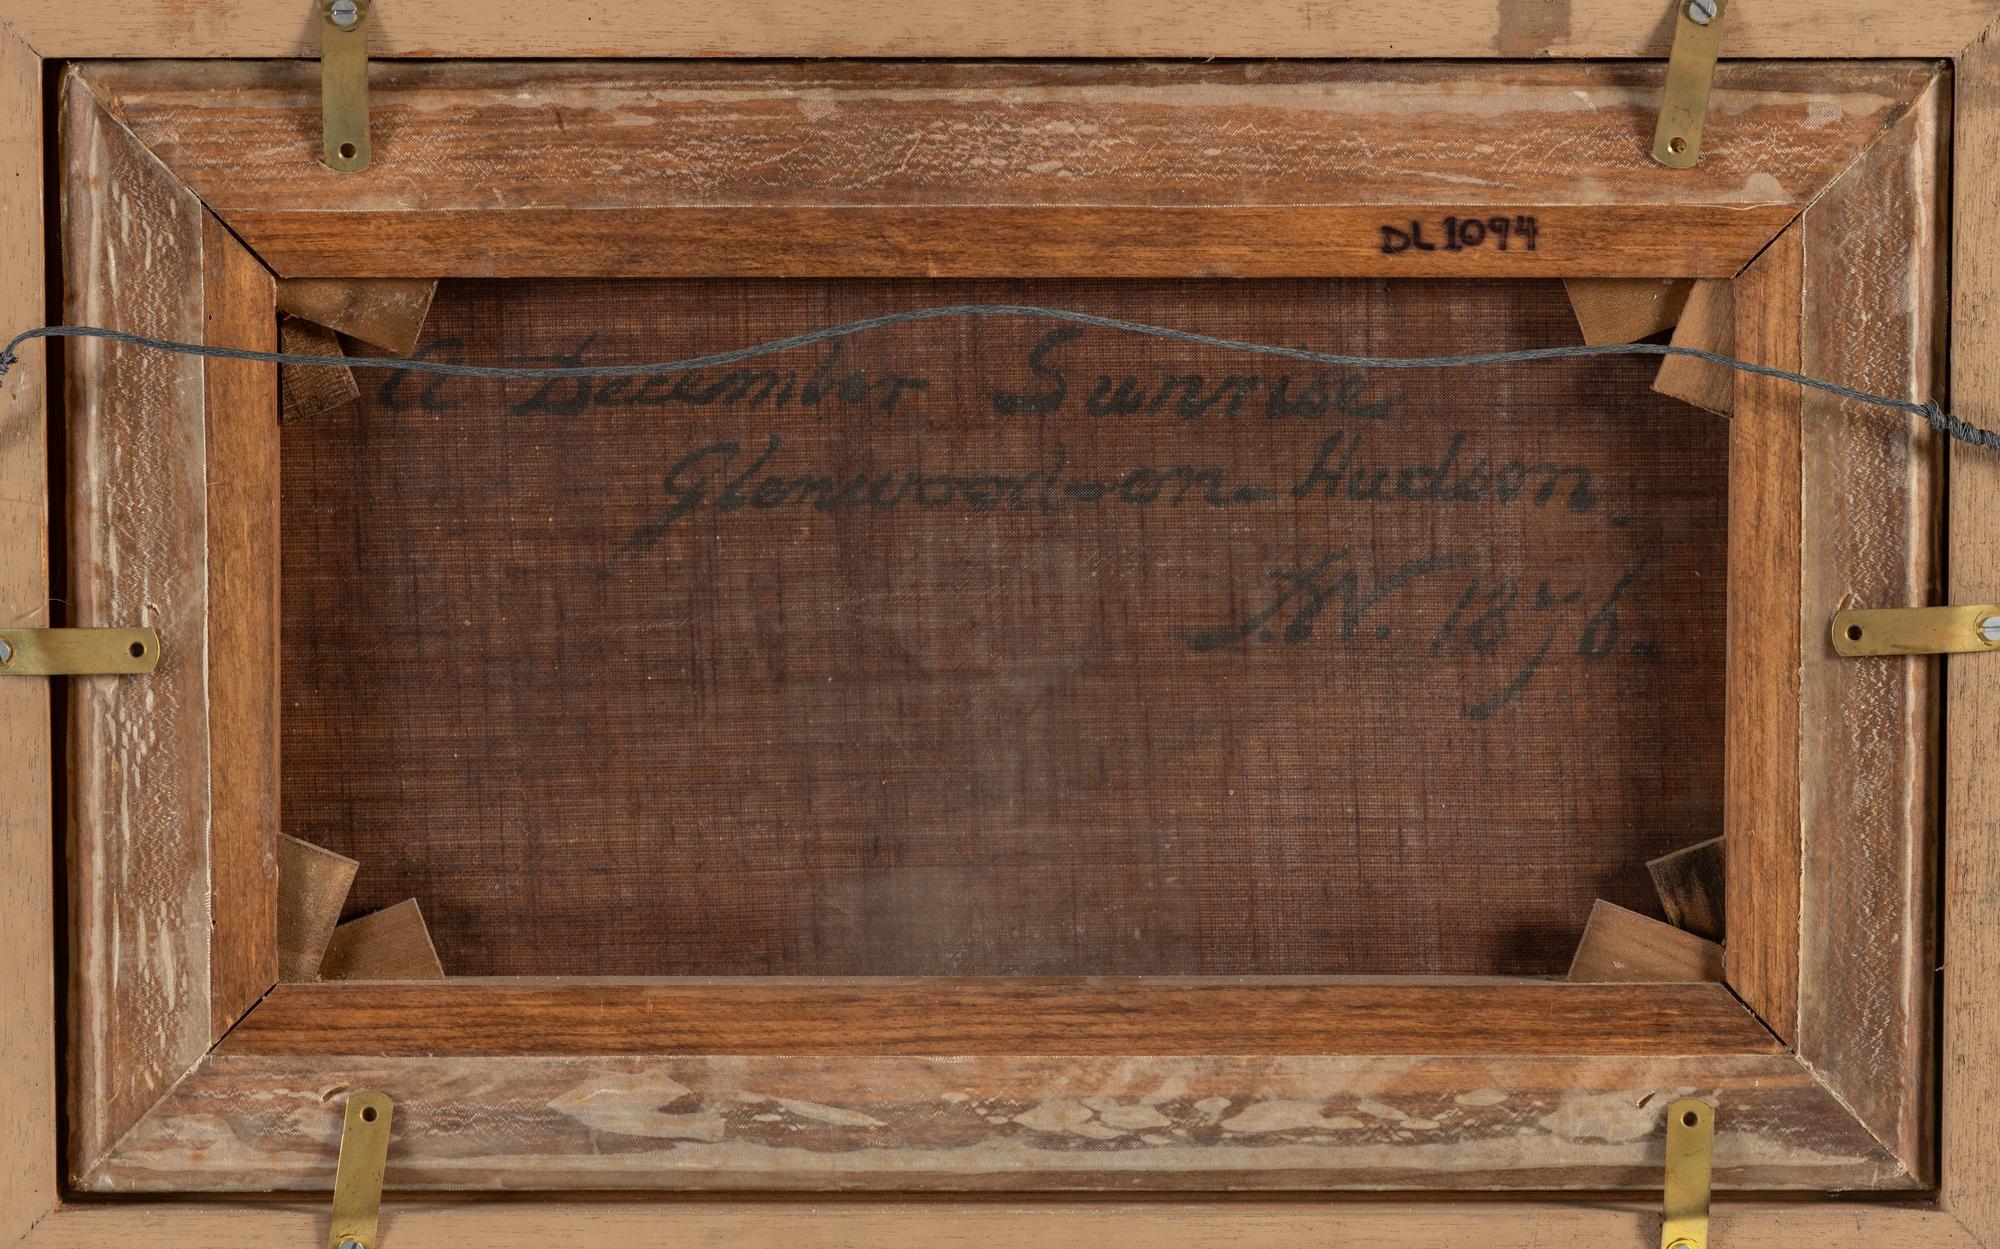 DL 1094
A December Sunrise
Glenwood-on-Hudson.
J.W. 1876.